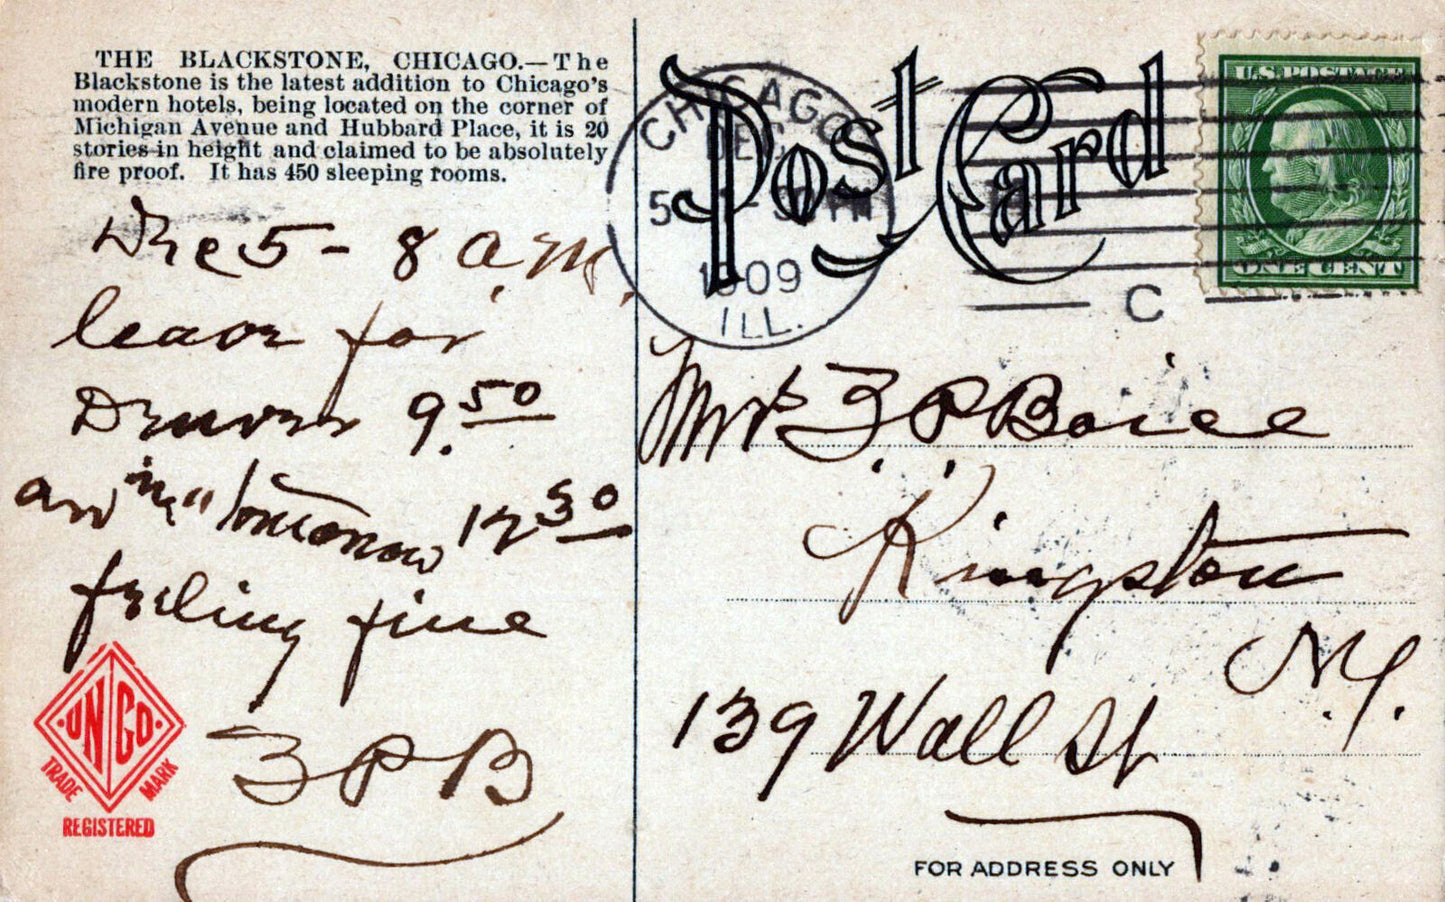 THE BLACKSTONE, CHICAGO.—The
Blackstone is the latest addition to Chicago's
modern hotels, being located on the corner of
Michigan Avenue and Hubbard Place, it is 20
stories in height and claimed to be absolutely
fire proof. It has 450 sleeping rooms.
Dec 5 - 8 a.m.
leave for
Denver 9.50
arr tomorrow 12 30
feeling fine
Z P B
UNCO
TRADE MARK
REGISTERED
Post Card
CHICAGO
DEC
5
1909
ILL.
C
U.S. POSTAGE
ONE CENT
Mrs Z. P. Boice
Kingston
N.Y.
139 Wall St
FOR ADDRESS ONLY